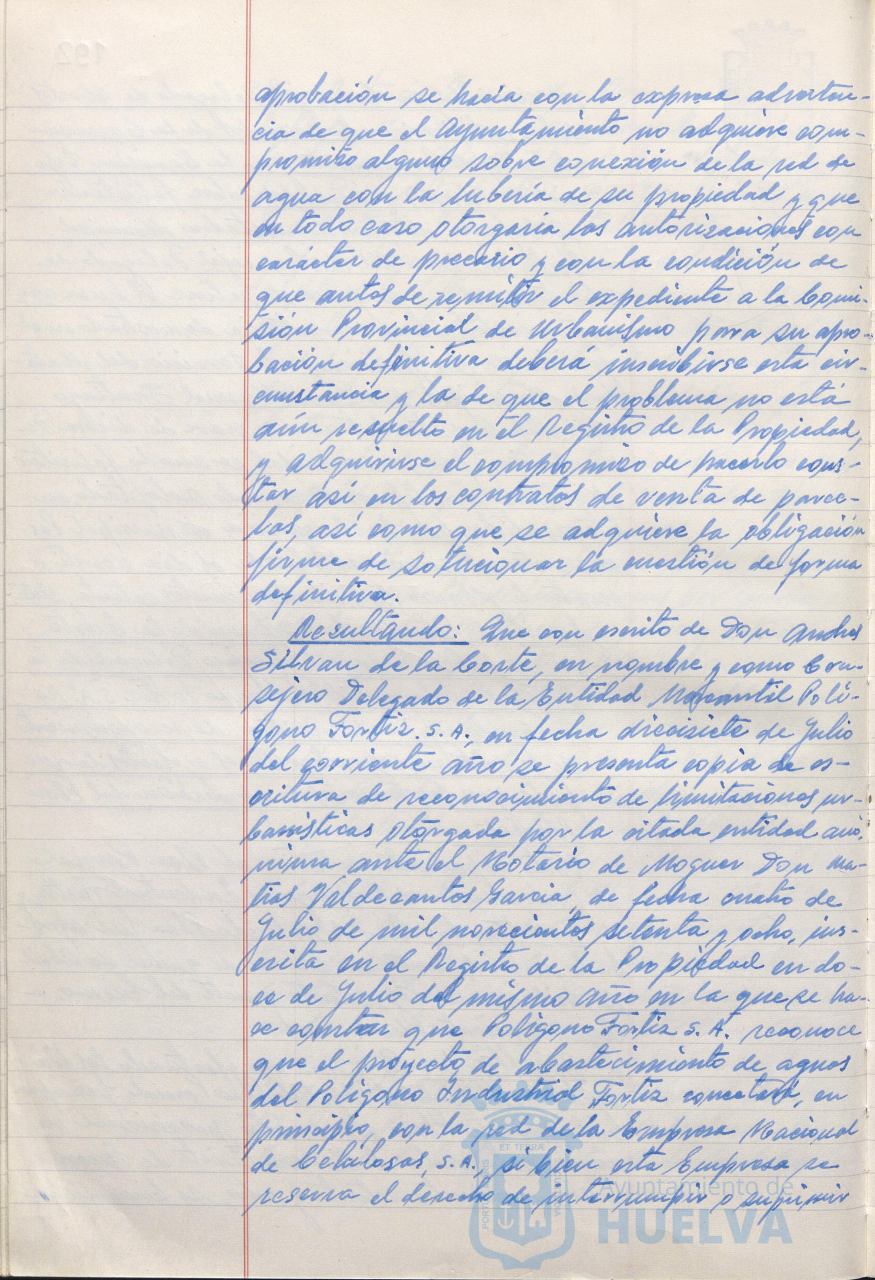 aprobación se hacía con la expresa adverten-
cia de que el Ayuntamiento no adquiere com-
promiso alguno sobre conexión de la red de
agua con la tubería de su propiedad y que
en todo caso otorgaría las autorizaciones con
carácter de precario y con la condición de
que antes de remitir el expediente a la Comi-
sión Provincial de Urbanismo para su apro-
bación definitiva deberá inscribirse esta cir-
cunstancia y la de que el problema no está
aún resuelto en el Registro de la Propiedad,
y adquirirse el compromiso de hacerlo cons-
tar así en los contratos de venta de parce-
las, así como que se adquiere la obligación
firme de solucionar la cuestión de forma
definitiva.
Resultando: Que con escrito de Don Andres
Silvan de la Corte, en nombre y como Con-
sejero Delegado de la Entidad Mercantil Polí-
gono Fortiz. S.A., en fecha diecisiete de Julio
del corriente año se presenta copia de es-
critura de reconocimiento de limitaciones ur-
banísticas otorgada por la citada entidad anó-
nima ante el Notario de Moguer Don Ma-
tias Valdecantos Garcia, de fecha cuatro de
Julio de mil novecientos setenta y ocho, ins-
crita en el Registro de la Propiedad en do-
ce de Julio del mismo año en la que se ha-
ce constar que Polígono Fortiz S.A. reconoce
que el proyecto de abastecimiento de aguas
del Polígono Industrial Fortiz conectará, en
principio, con la red de la Empresa Nacional
de Celulosas, S.A., si bien esta Empresa se
reserva el derecho de interrumpir o suprimir
Ayuntamiento de
HUELVA